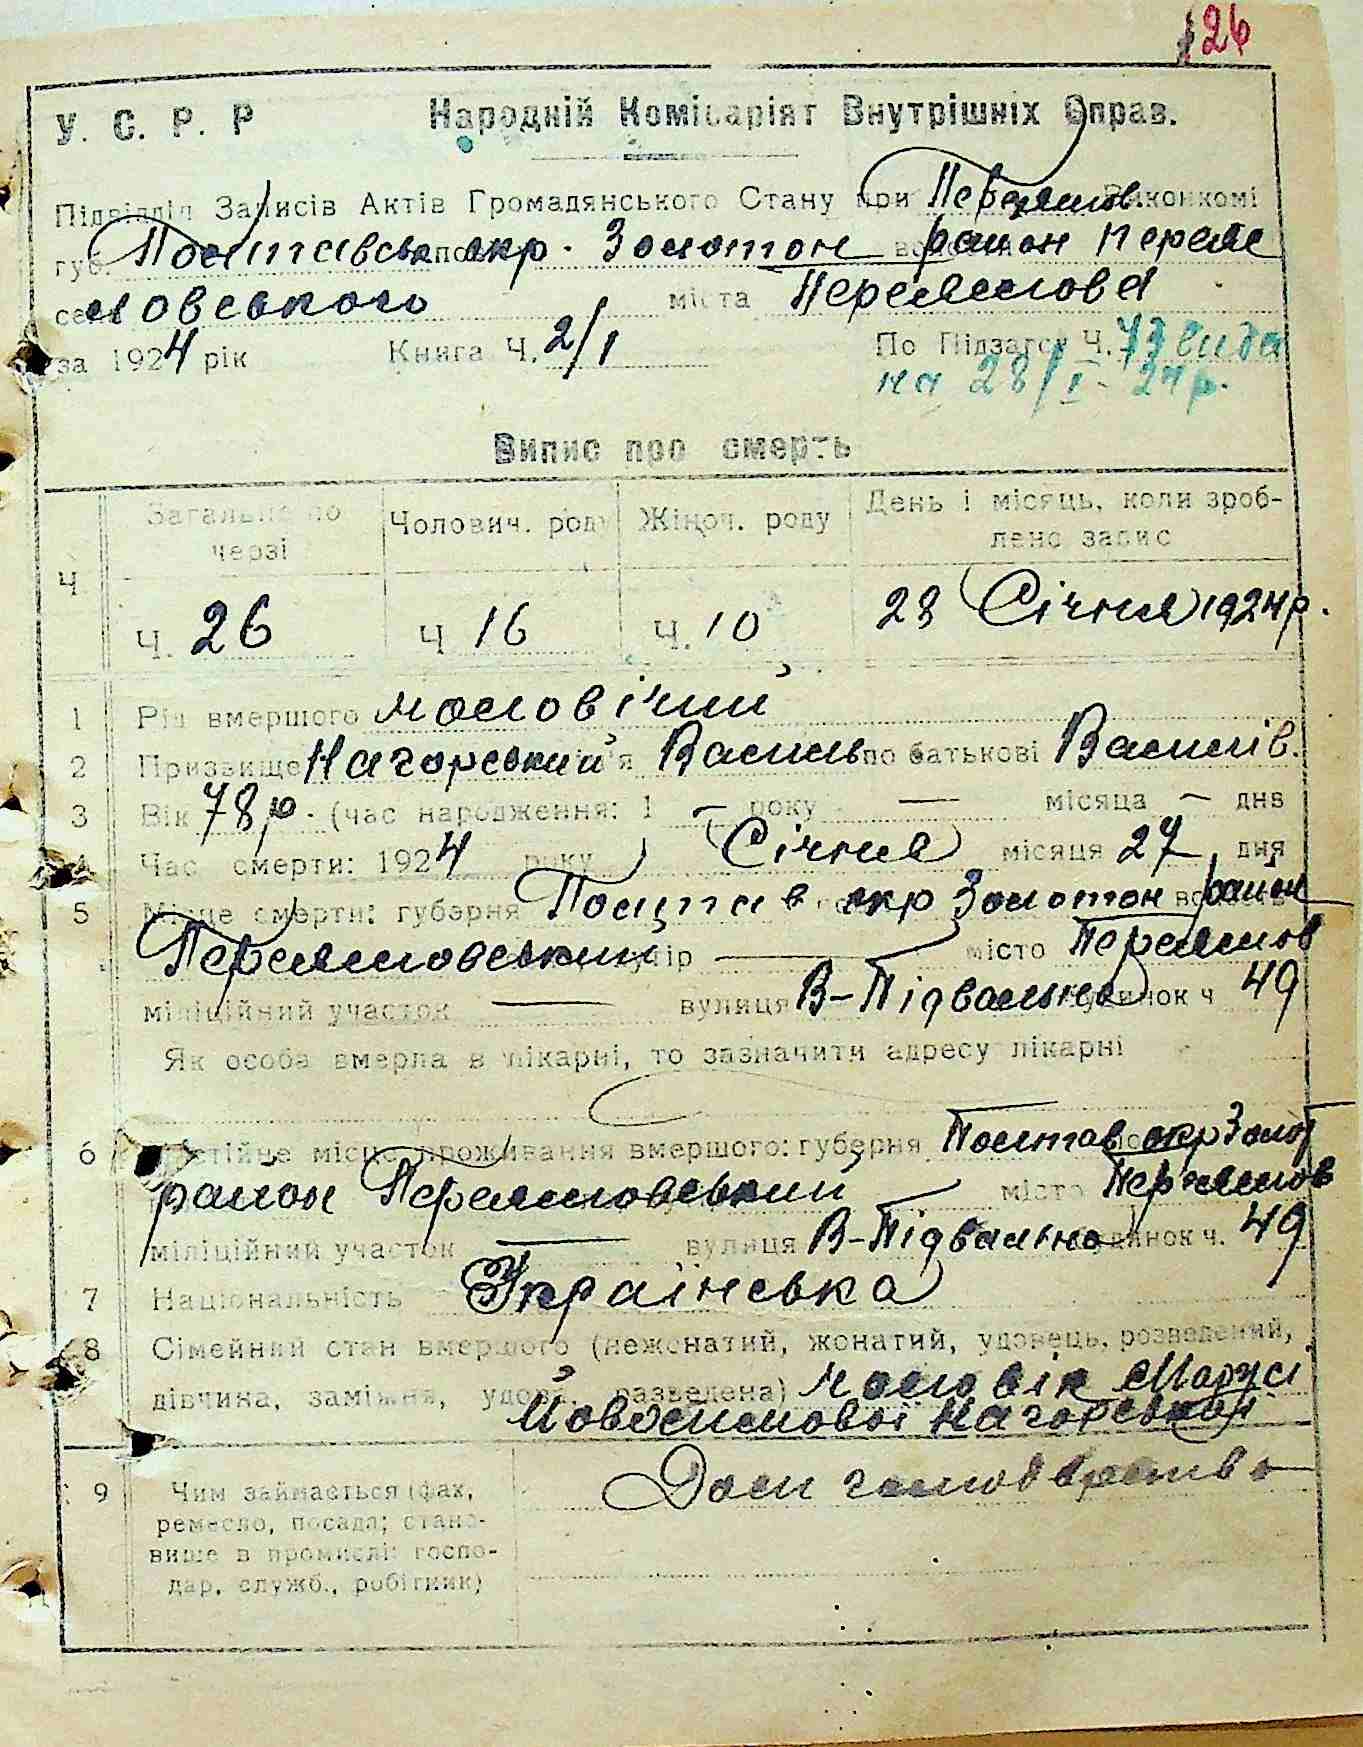 126
У. С. Р. Р Народній Комісаріят Внутрішніх Справ.
Підвідділ Записів Актів Громадянського Стану при Переяслов. Виконкомі
губ. Полтавськ окр. Золотон район Переяс
ловського міста Переяслова
за 1924 рік Книга Ч. 2/1 По Підзагсу Ч. 73 вида
на 28/I - 24 р.
Випис про смерть
Загальне по черзі Чолович. роду Жіноч. роду День і місяць, коли зроб-
лено запис
Ч
Ч. 26 Ч 16 Ч. 10 28 Січня 1924 р.
1 Рід вмершого чоловічий
2 Призвище Нагорський Василь по батькові Василів.
3 Вік 78 р. (час народження: 1 — року — місяца — дня
4 Час смерти: 1924 року Січня місяця 27 дня
5 Місце смерти: губерня Полтав окр Золотон район
Переясловський — місто Переяслов
міліційний участок — вулиця В-Підвальна будинок ч 49
Як особа вмерла в лікарні, то зазначити адресу лікарні
6 Постійне місце проживання вмершого: губерня Полтав окр Золот
район Переясловський місто Переяслов
міліційний участок — вулиця В-Підвальна будинок ч. 49
7 Національність Українська
8 Сімейний стан вмершого (нежонатий, жонатий, удовець, розведений,
дівчина, заміжня, удова, разведена) чоловік Марусі
Нагорської
9 Чим займається (фах,
ремесло, посада; стано-
вище в промислі: госпо-
дар, служб., робітник)